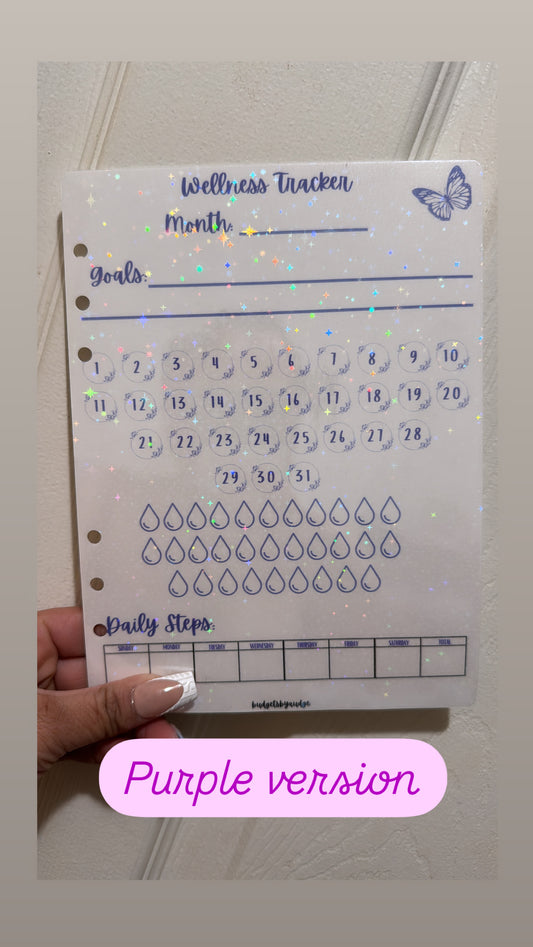 Wellness Tracker
Month:
Goals:
1 2 3 4 5 6 7 8 9 10
11 12 13 14 15 16 17 18 19 20
21 22 23 24 25 26 27 28
29 30 31
Daily Steps:
SUNDAY MONDAY TUESDAY WEDNESDAY THURSDAY FRIDAY SATURDAY TOTAL
budgetsbyaudge
Purple version